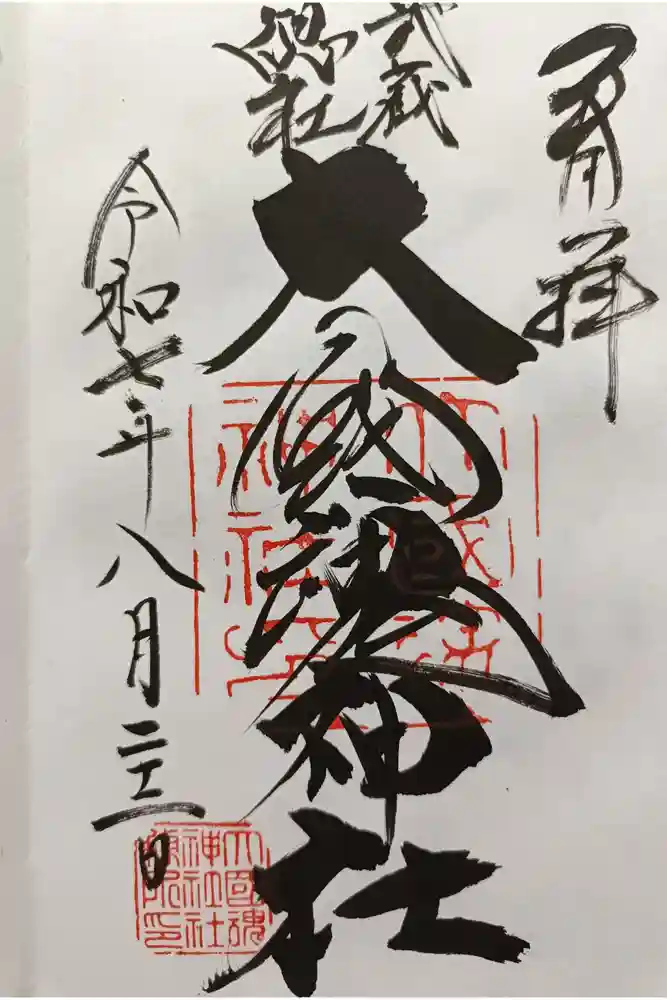 奉拝
武蔵
総社
大國魂神社
令和七年八月二十三日
大國魂
神社社
務所印